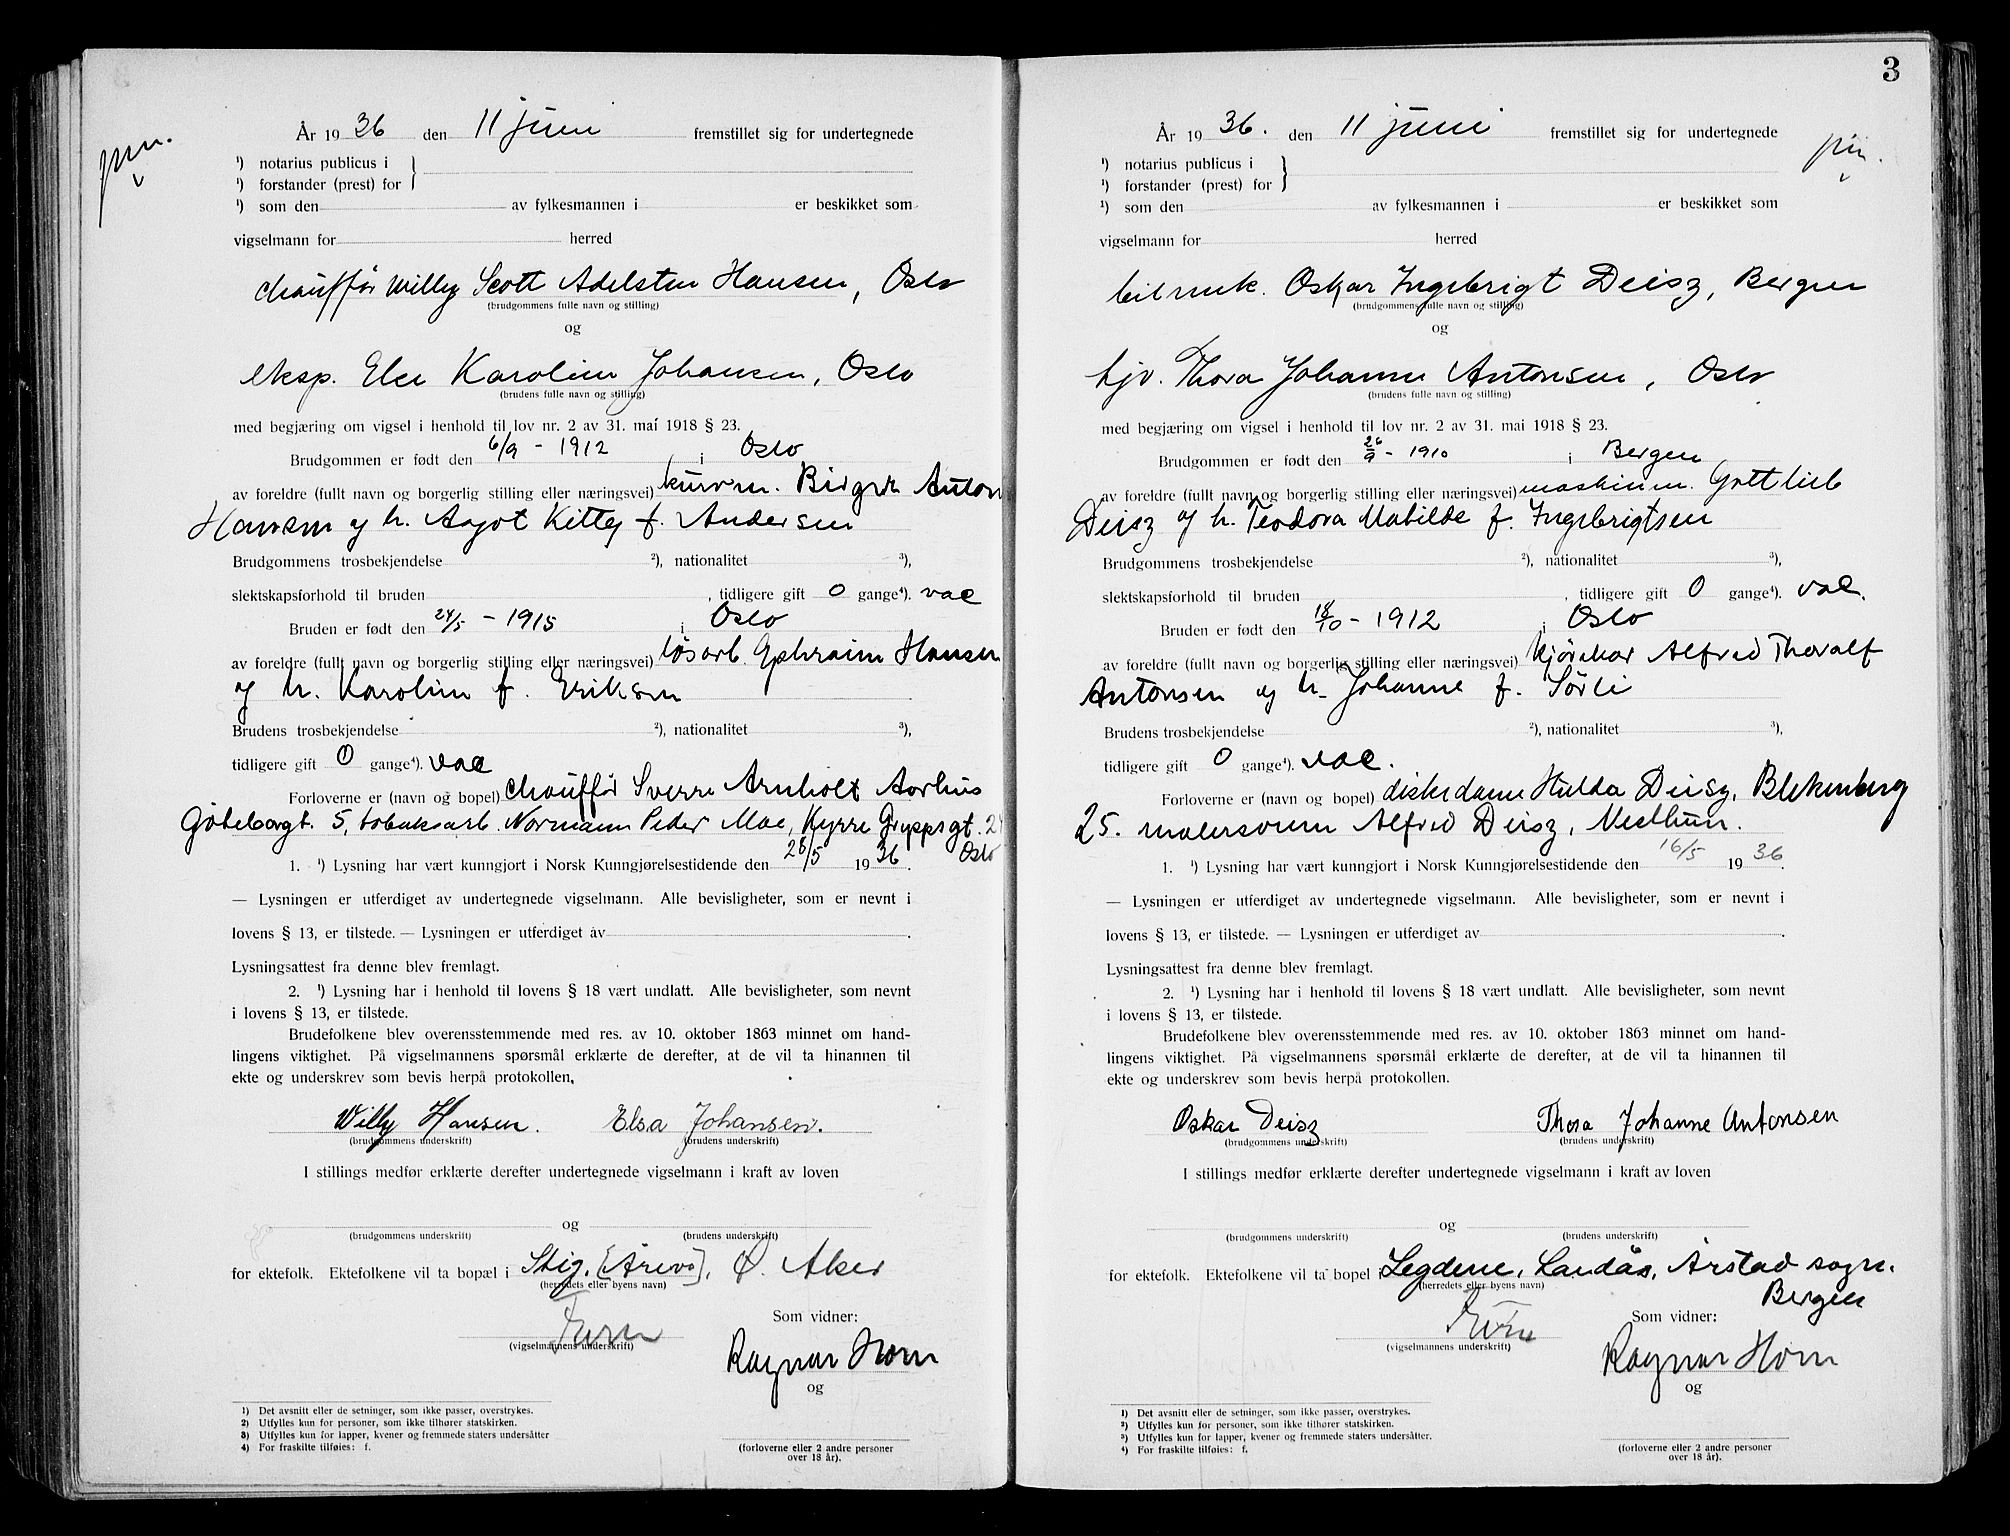 År 1936 den 11 juni fremstillet sig for undertegnede
¹) notarius publicus i
¹) forstander (prest) for
¹) som den av fylkesmannen i er beskikket som
vigselmann for herred
chauffør Willy Scott Adelsten Hansen, Oslo
(brudgommens fulle navn og stilling)
og
eksp. Else Karoline Johansen, Oslo
(brudens fulle navn og stilling)
med begjæring om vigsel i henhold til lov nr. 2 av 31. mai 1918 § 23.
Brudgommen er født den 6/9 - 1912 i Oslo
av foreldre (fullt navn og borgerlig stilling eller næringsvei) kurvm. Birger Anton
Hansen og h. Aagot Kitty f. Andersen
Brudgommens trosbekjendelse ²), nationalitet ³),
slektskapsforhold til bruden , tidligere gift 0 gange⁴). vac
Bruden er født den 24/5 - 1915 i Oslo
av foreldre (fullt navn og borgerlig stilling eller næringsvei) løsarb. Ephraim Hansen
og h. Karoline f. Eriksen
Brudens trosbekjendelse ²), nationalitet ³),
tidligere gift 0 gange⁴). vac
Forloverne er (navn og bopel) chauffør Sverre Arnholt Aarhus
Göteborggt. 5, tobaksarb. Normann Peder Moe, Kyrre Gryppsgt. 24
Oslo
1. ¹) Lysning har vært kunngjort i Norsk Kunngjørelsestidende den 28/5 1936.
— Lysningen er utferdiget av undertegnede vigselmann. Alle bevisligheter, som er nevnt i
lovens § 13, er tilstede. — Lysningen er utferdiget av .
Lysningsattest fra denne blev fremlagt.
2. ¹) Lysning har i henhold til lovens § 18 vært undlatt. Alle bevisligheter, som nevnt
i lovens § 13, er tilstede.
Brudefolkene blev overensstemmende med res. av 10. oktober 1863 minnet om hand-
lingens viktighet. På vigselmannens spørsmål erklærte de derefter, at de vil ta hinannen til
ekte og underskrev som bevis herpå protokollen.
Willy Hansen. Elsa Johansen.
(brudgommens underskrift) (brudens underskrift)
I stillings medfør erklærte derefter undertegnede vigselmann i kraft av loven
og
(brudgommens underskrift) (brudens underskrift)
for ektefolk. Ektefolkene vil ta bopæl i Stig, [Årvo], Ø. Aker
(herredets eller byens navn)
Som vidner:
(vigselmannens underskrift)
Ragnar Horn
og
¹) Det avsnitt eller de setninger, som ikke passer, overstrykes.
²) Utfylles kun for personer, som ikke tilhører statskirken.
³) Utfylles kun for lapper, kvener og fremmede staters undersåtter
⁴) For fraskilte tilføies: f.
(forloverne eller 2 andre personer
over 18 år).
3
År 1936. den 11 juni fremstillet sig for undertegnede
¹) notarius publicus i
¹) forstander (prest) for
¹) som den av fylkesmannen i er beskikket som
vigselmann for herred
bilmek. Oskar Ingebrigt Deisz, Bergen
(brudgommens fulle navn og stilling)
og
hjv. Thora Johanne Antonsen, Oslo
(brudens fulle navn og stilling)
med begjæring om vigsel i henhold til lov nr. 2 av 31. mai 1918 § 23.
Brudgommen er født den 26/9 - 1910 i Bergen
av foreldre (fullt navn og borgerlig stilling eller næringsvei) maskinm. Gottlieb
Deisz og h. Teodora Matilde f. Ingebrigtsen
Brudgommens trosbekjendelse ²), nationalitet ³),
slektskapsforhold til bruden , tidligere gift 0 gange⁴). vac.
Bruden er født den 18/10 - 1912 i Oslo
av foreldre (fullt navn og borgerlig stilling eller næringsvei) kjørekar Alfred Thoralf
Antonsen og h. Johanne f. Sörli
Brudens trosbekjendelse ²), nationalitet ³),
tidligere gift 0 gange⁴). vac.
Forloverne er (navn og bopel) diskedame Hulda Deisz, Blekenberg
25. malersvenn Alfred Deisz, Nesttun.
1. ¹) Lysning har vært kunngjort i Norsk Kunngjørelsestidende den 16/5 1936.
— Lysningen er utferdiget av undertegnede vigselmann. Alle bevisligheter, som er nevnt i
lovens § 13, er tilstede. — Lysningen er utferdiget av .
Lysningsattest fra denne blev fremlagt.
2. ¹) Lysning har i henhold til lovens § 18 vært undlatt. Alle bevisligheter, som nevnt
i lovens § 13, er tilstede.
Brudefolkene blev overensstemmende med res. av 10. oktober 1863 minnet om hand-
lingens viktighet. På vigselmannens spørsmål erklærte de derefter, at de vil ta hinannen til
ekte og underskrev som bevis herpå protokollen.
Oskar Deisz Thora Johanne Antonsen
(brudgommens underskrift) (brudens underskrift)
I stillings medfør erklærte derefter undertegnede vigselmann i kraft av loven
og
(brudgommens underskrift) (brudens underskrift)
for ektefolk. Ektefolkene vil ta bopel i Legdene, Landås, Årstad sogn.
(herredets eller byens navn) Bergen
Som vidner:
(vigselmannens underskrift)
Ragnar Horn
og
¹) Det avsnitt eller de setninger, som ikke passer, overstrykes.
²) Utfylles kun for personer, som ikke tilhører statskirken.
³) Utfylles kun for lapper, kvener og fremmede staters undersåtter.
⁴) For fraskilte tilføies: f.
(forloverne eller 2 andre personer
over 18 år).